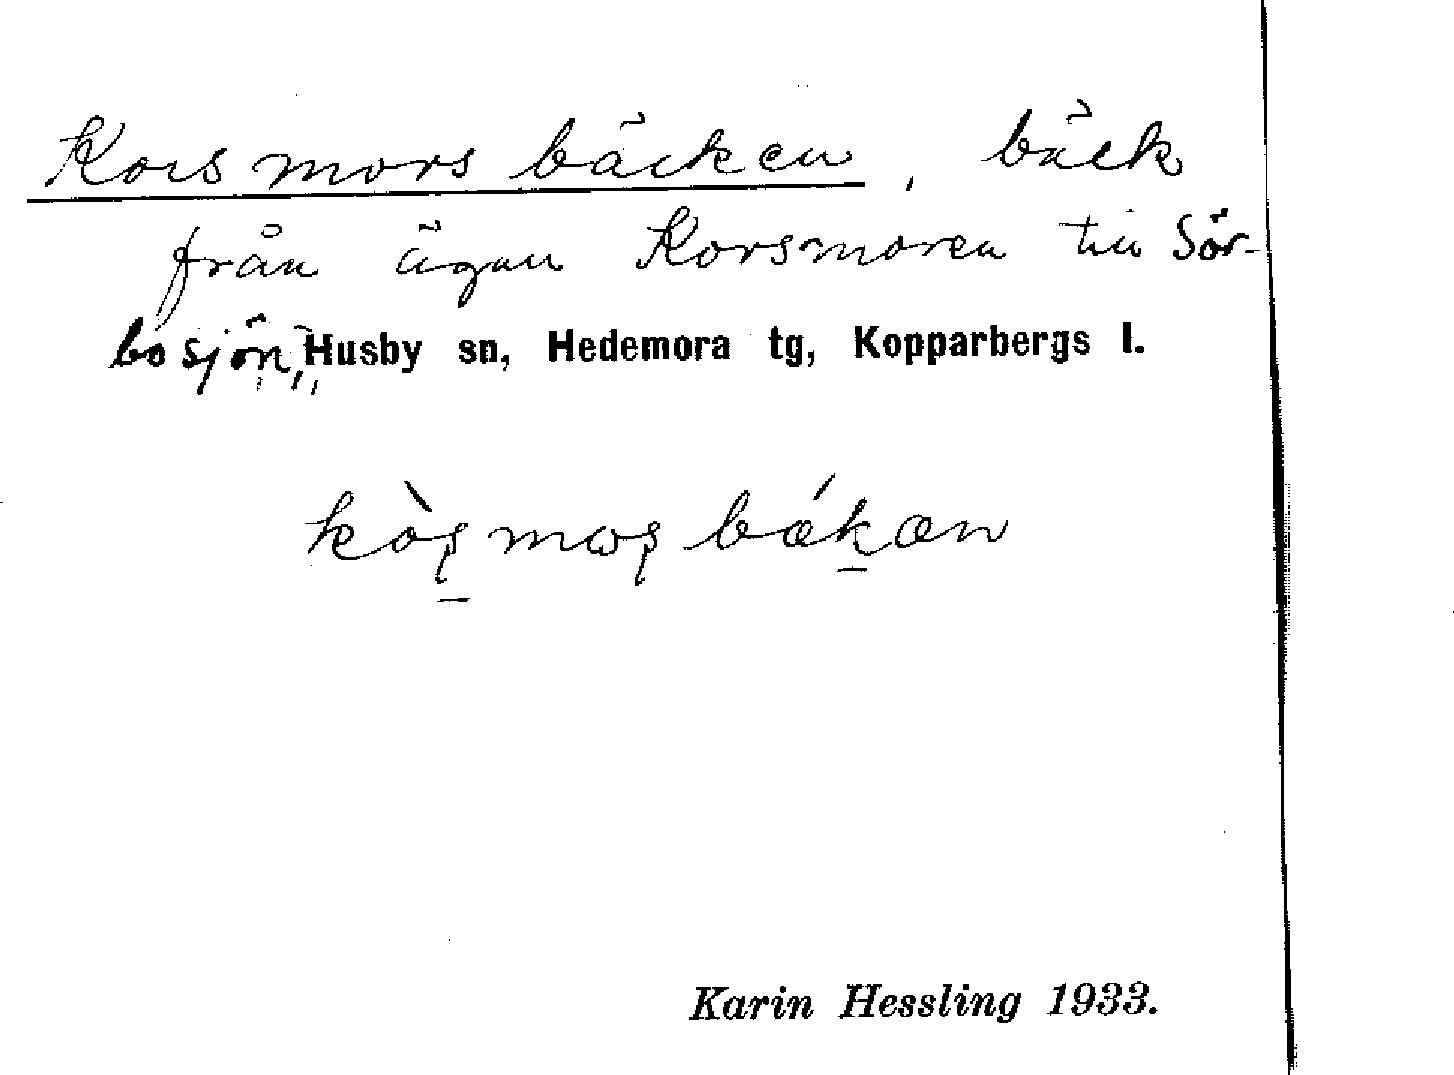 Korsmorsbäcken, bäck
från ägan Korsmoren till Sör-
bosjön, Husby sn, Hedemora tg, Kopparbergs l.
kò̱ʂmωʂbǽḵæn
Karin Hessling 1933.